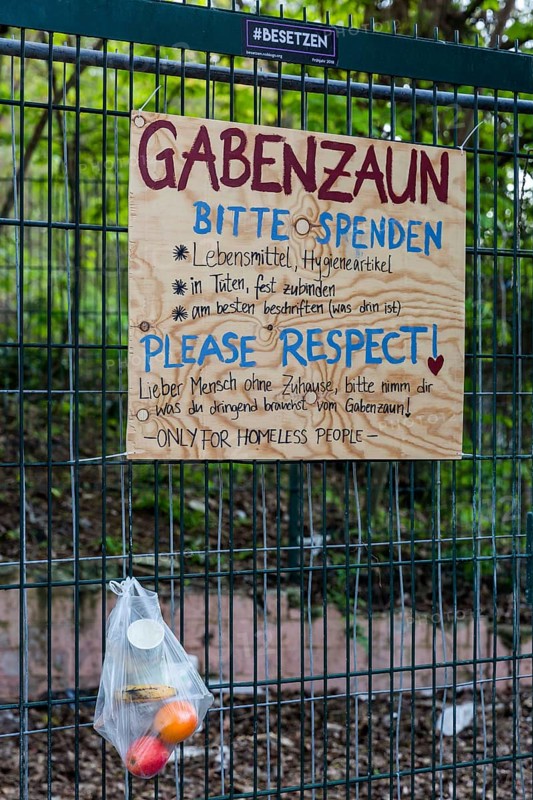 #BESETZEN
besetzen.noblogs.org Frühjahr 2018
GABENZAUN
BITTE SPENDEN
* Lebensmittel, Hygieneartikel
* in Tüten, fest zubinden
* am besten beschriften (was drin ist)
PLEASE RESPECT!
Lieber Mensch ohne Zuhause, bitte nimm dir
was du dringend brauchst vom Gabenzaun!
- ONLY FOR HOMELESS PEOPLE -